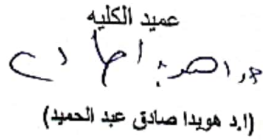 عميد الكليه
(ا.د هويدا صادق عبد الحميد)